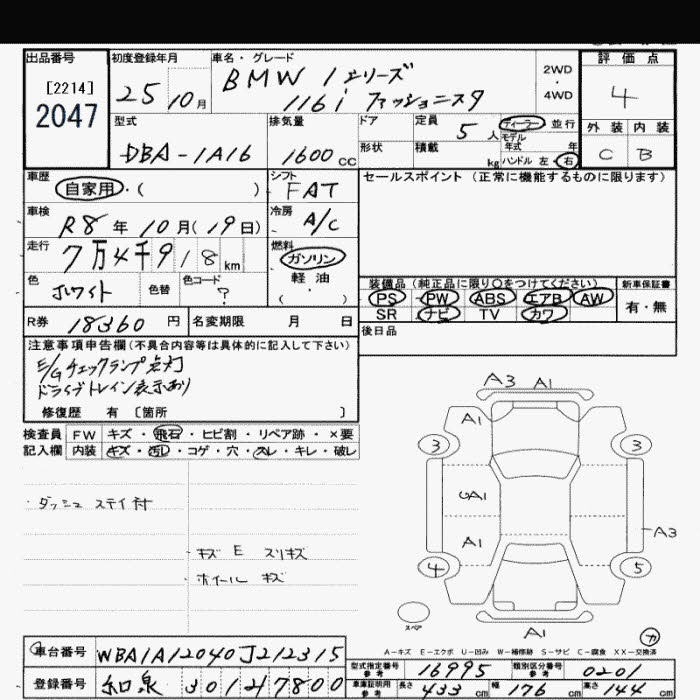 出品番号 初度登録年月 車名・グレード 2WD ・ 4WD 評価点
[2214]
2047
25 10月
BMW 1シリーズ
116i ファッショニスタ
4
外装 内装
C B
型式 排気量 ドア 定員 5人 ディーラー 並行
モデル年式 年
形状 積載 kg ハンドル 左・右
DBA-1A16 1600cc
車歴 シフト セールスポイント (正常に機能するものに限ります)
自家用・( ) FAT
車検 冷房
R8年10月(19日) A/C
走行 燃料
7万4千918km ガソリン
軽油
・
( )
色 色替 色コード
ホワイト ?
装備品(純正品に限り○をつけてください) 新車保証書
PS PW ABS エアB AW 有・無
SR ナビ TV カワ
R券 18360円 名変期限 月 日 後日品
注意事項申告欄(不具合内容等は具体的に記入して下さい)
E/Gチェックランプ点灯
ドライブトレイン表示あり
修復歴 有 〔箇所 〕
検査員 FW キズ・飛石・ヒビ割・リペア跡・×要
記入欄 内装 キズ・汚レ・コゲ・穴・スレ・キレ・破レ
ダッシュ ステイ付
キズ E スリキズ
ホイール キズ
A3 A1
A1
3 3
UA1
A3
A1
4 5
スペア
A1
カ
A-キズ E-エクボ U-凹み W-補修跡 S-サビ C-腐食 XX-交換済
車台番号 WBA1A12040J212315
型式指定番号 参考 16995 類別区分番号 参考 0201
登録番号 和泉 301 ち 7800
車庫証明用 参考 長さ 433cm 幅 176cm 高さ 144cm